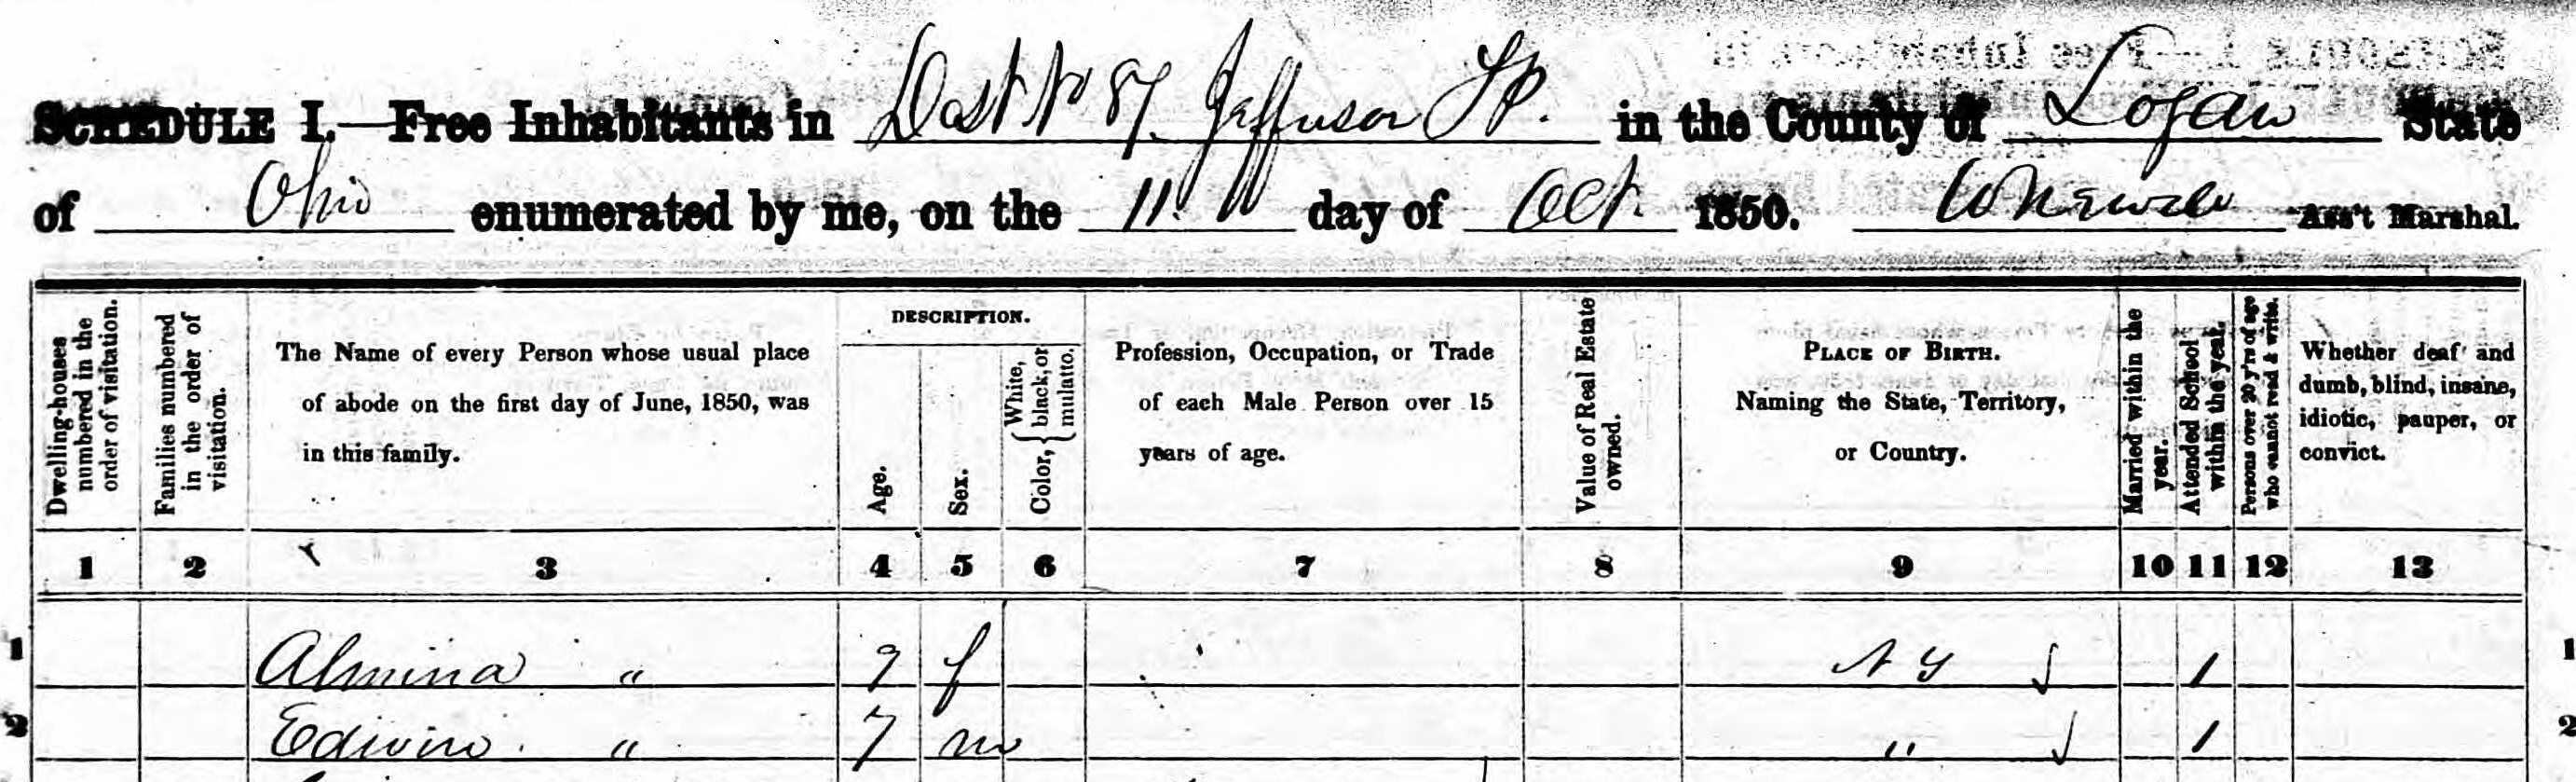 SCHEDULE I.—Free Inhabitants in Dist No 87. Jefferson Tp. in the County of Logan State
of Ohio enumerated by me, on the 11. day of Oct. 1850. Ass't Marshal.
Dwelling-houses numbered in the order of visitation.
Families numbered in the order of visitation.
The Name of every Person whose usual place
of abode on the first day of June, 1850, was
in this family.
DESCRIPTION.
Age.
Sex.
Color, { White, black, or mulatto.
Profession, Occupation, or Trade
of each Male Person over 15
years of age.
Value of Real Estate owned.
PLACE OF BIRTH.
Naming the State, Territory,
or Country.
Married within the year.
Attended School within the year.
Persons over 20 y'rs of age who cannot read & write.
Whether deaf and
dumb, blind, insane,
idiotic, pauper, or
convict.
1 2 3 4 5 6 7 8 9 10 11 12 13
1 Almina " 9 f N Y 1 1
2 Edwin. " 7 m " 1 2